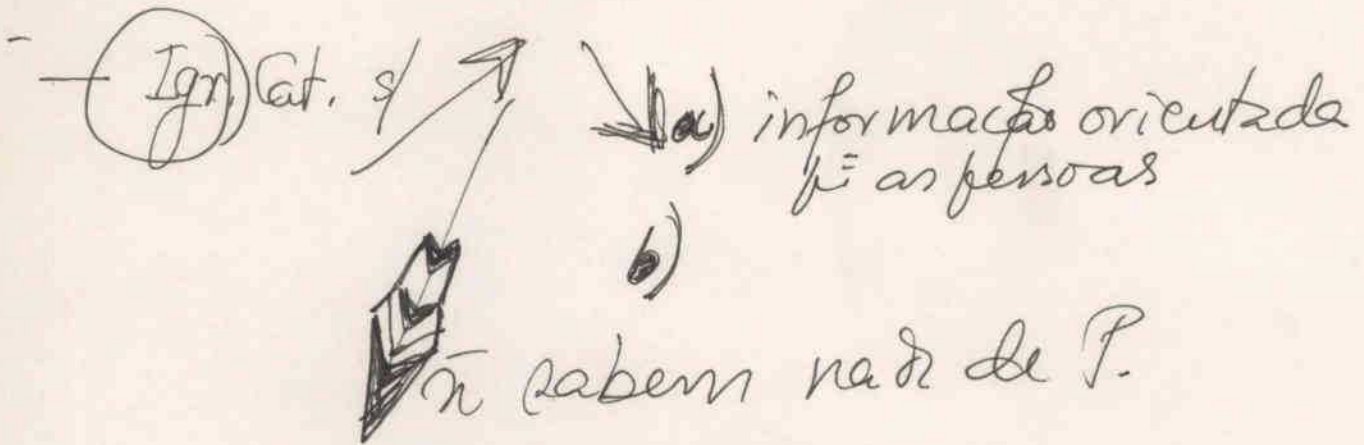 — Ign. Cat. s/
a) informação orientada
p= as pessoas
b)
ñ sabem nada de P.